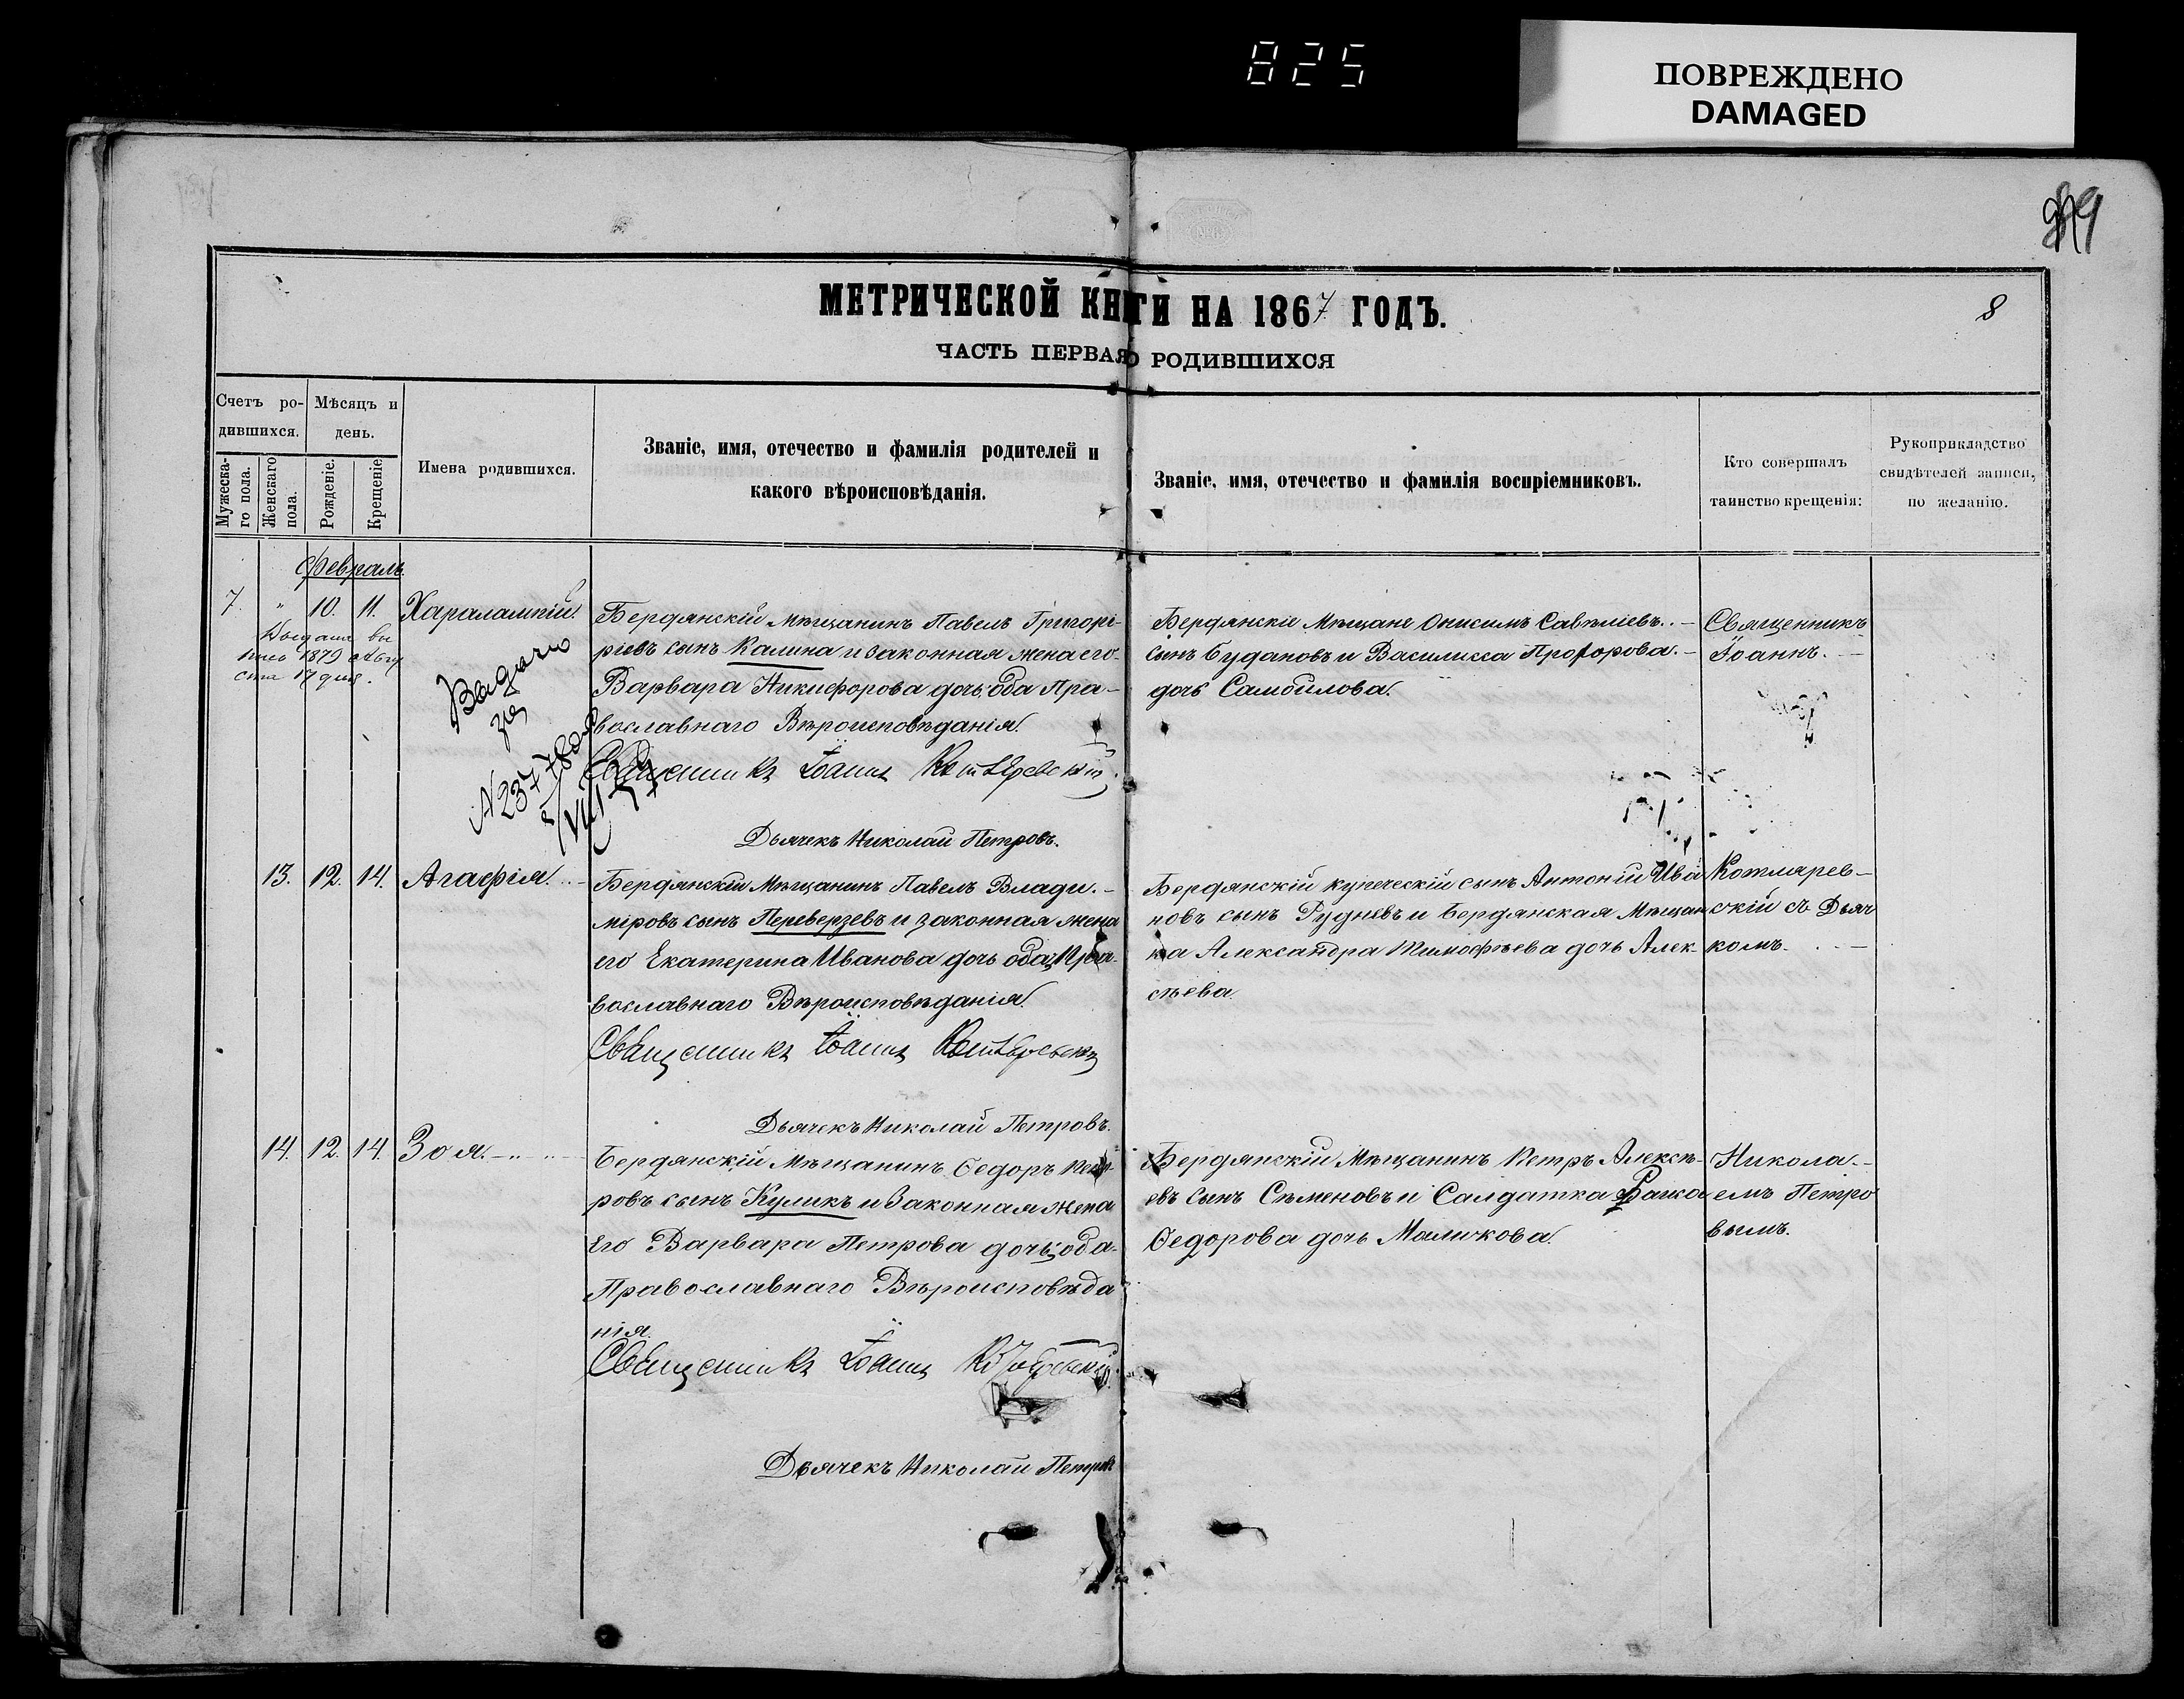 825
ПОВРЕЖДЕНО
DAMAGED
МЕТРИЧЕСКОЙ КНИГИ НА 1867 ГОДЪ.
8
ЧАСТЬ ПЕРВАЯ О РОДИВШИХСЯ
Счетъ ро-
дившихся.
Мѣсяцъ и
день.
Мужеска-
го пола.
Женскаго
пола.
Рожденіе.
Крещеніе
Имена родившихся.
Званіе, имя, отечество и фамилія родителей и
какого вѣроисповѣданія.
Званіе, имя, отечество и фамилія воспріемниковъ.
Кто совершалъ
таинство крещенія:
Рукоприкладство
свидѣтелей записи,
по желанію.
Февраль.
7. " 10. 11. Харалампій.
1879
17 дня.
Видано
N 237
Бердянскій Мѣщанинъ Павелъ Григорі-
ріевъ сынъ Калина и законная жена его
Варвара Никифорова дочь, оба Пра-
вославнаго Вѣроисповѣданія.
Священникъ Іоаннъ Котляревскій
Дьячекъ Николай Петровъ.
Бердянскіи Мѣщане Онисимъ Савеліевъ
сынъ Будановъ и Василисса Прохорова
дочь Самойлова.
Священникъ
Іоаннъ.
13. 12. 14. Агафія.
Бердянскій Мѣщанинъ Павелъ Влади-
міровъ сынъ Переверзевъ и законная жена
его Екатерина Иванова дочь оба Пра-
вославнаго Вѣроисповѣданія.
Священникъ Іоаннъ Котляревскій
Дьячекъ Николай Петровъ.
Бердянскій купеческій сынъ Антоній Ива
новъ сынъ Рудневъ и Бердянская Мѣщан
ка Александра Тимофѣева дочь Алек-
сѣева
Котлярев-
скій съ Дьяч
комъ.
14. 12. 14. Зоя.
Бердянскій Мѣщанинъ Федоръ Пет-
ровъ сынъ Куликъ и Законная жена
его Варвара Петрова дочь, оба
Православнаго Вѣроисповѣда
нія.
Священникъ Іоаннъ Котляревскій
Дьячекъ Николай Петровъ
Бердянскій Мѣщанинъ Петръ Алексѣ-
евъ сынъ Сѣменовъ и Салдатка
Федорова дочь Маликова.
Никола-
емъ Петро
вымъ.